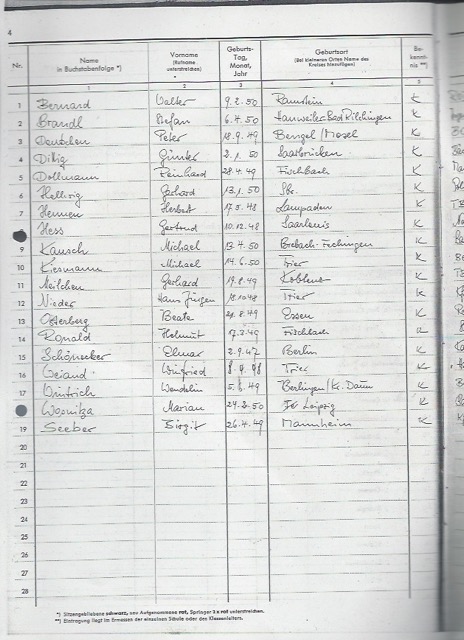 4
Nr. Name in Buchstabenfolge *) Vorname (Rufname unterstreichen) Geburts-Tag, Monat, Jahr Geburtsort (Bei kleineren Orten Name des Kreises hinzufügen) Be-kennt-nis **)
1 2 3 4 5
1 Bernard Walter 9.2.50 Ramstein K
2 Brandl Stefan 6.4.50 Hanweiler-Bad Rilchingen K
3 Deutschen Peter 18.9.49 Bengel/Mosel K
4 Dillig Günter 2.1.50 Saarbrücken K
5 Dollmann Reinhard 28.4.49 Fischbach K
6 Hellwig Gerhard 13.1.50 Sbr. K
7 Hennen Herbert 17.5.48 Lampaden K
Hess Gertrud 10.12.48 Saarlouis K
9 Kausch Michael 13.4.50 Brebach-Fechingen K
10 Kiesmann Michael 14.6.50 Trier K
11 Meilchen Gerhard 17.8.49 Koblenz K
12 Nieder Hans Jürgen Trier K
13 Osterberg Beate 29.8.49 Essen K
14 Ronald Helmut 17.3.49 Fischbach K
15 Schönecker Elmar 2.9.47 Berlin K
16 Weiand Winfried Trier K
17 Wintrich Wendelin 49 Berlingen/Kr. Daun K
Marian 24.2.50 Leipzig K
19 Seeber Birgit 26.4.49 Mannheim K
20
21
22
23
24
25
26
27
28
*) Sitzengebliebene schwarz, neu Aufgenommene rot, Springer 2 x rot unterstreichen.
**) Eintragung liegt im Ermessen der einzelnen Schule oder des Klassenleiters.